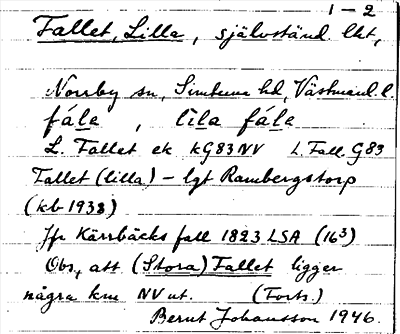 1 - 2
Fallet, Lilla, självständ. lht,
Norrby sn, Simtuna hd, Västmanl. l.
fále , lìla fále
L. Fallet ek kG83NV L. Fall. G83
Fallet (lilla) - lgt Rambergstorp
(kb 1938)
Jfr Kärrbäcks fall 1823 LSA (16³)
Obs, att (Stora) Fallet ligger
några km NV ut. (Forts.)
Bernt Johansson 1946.